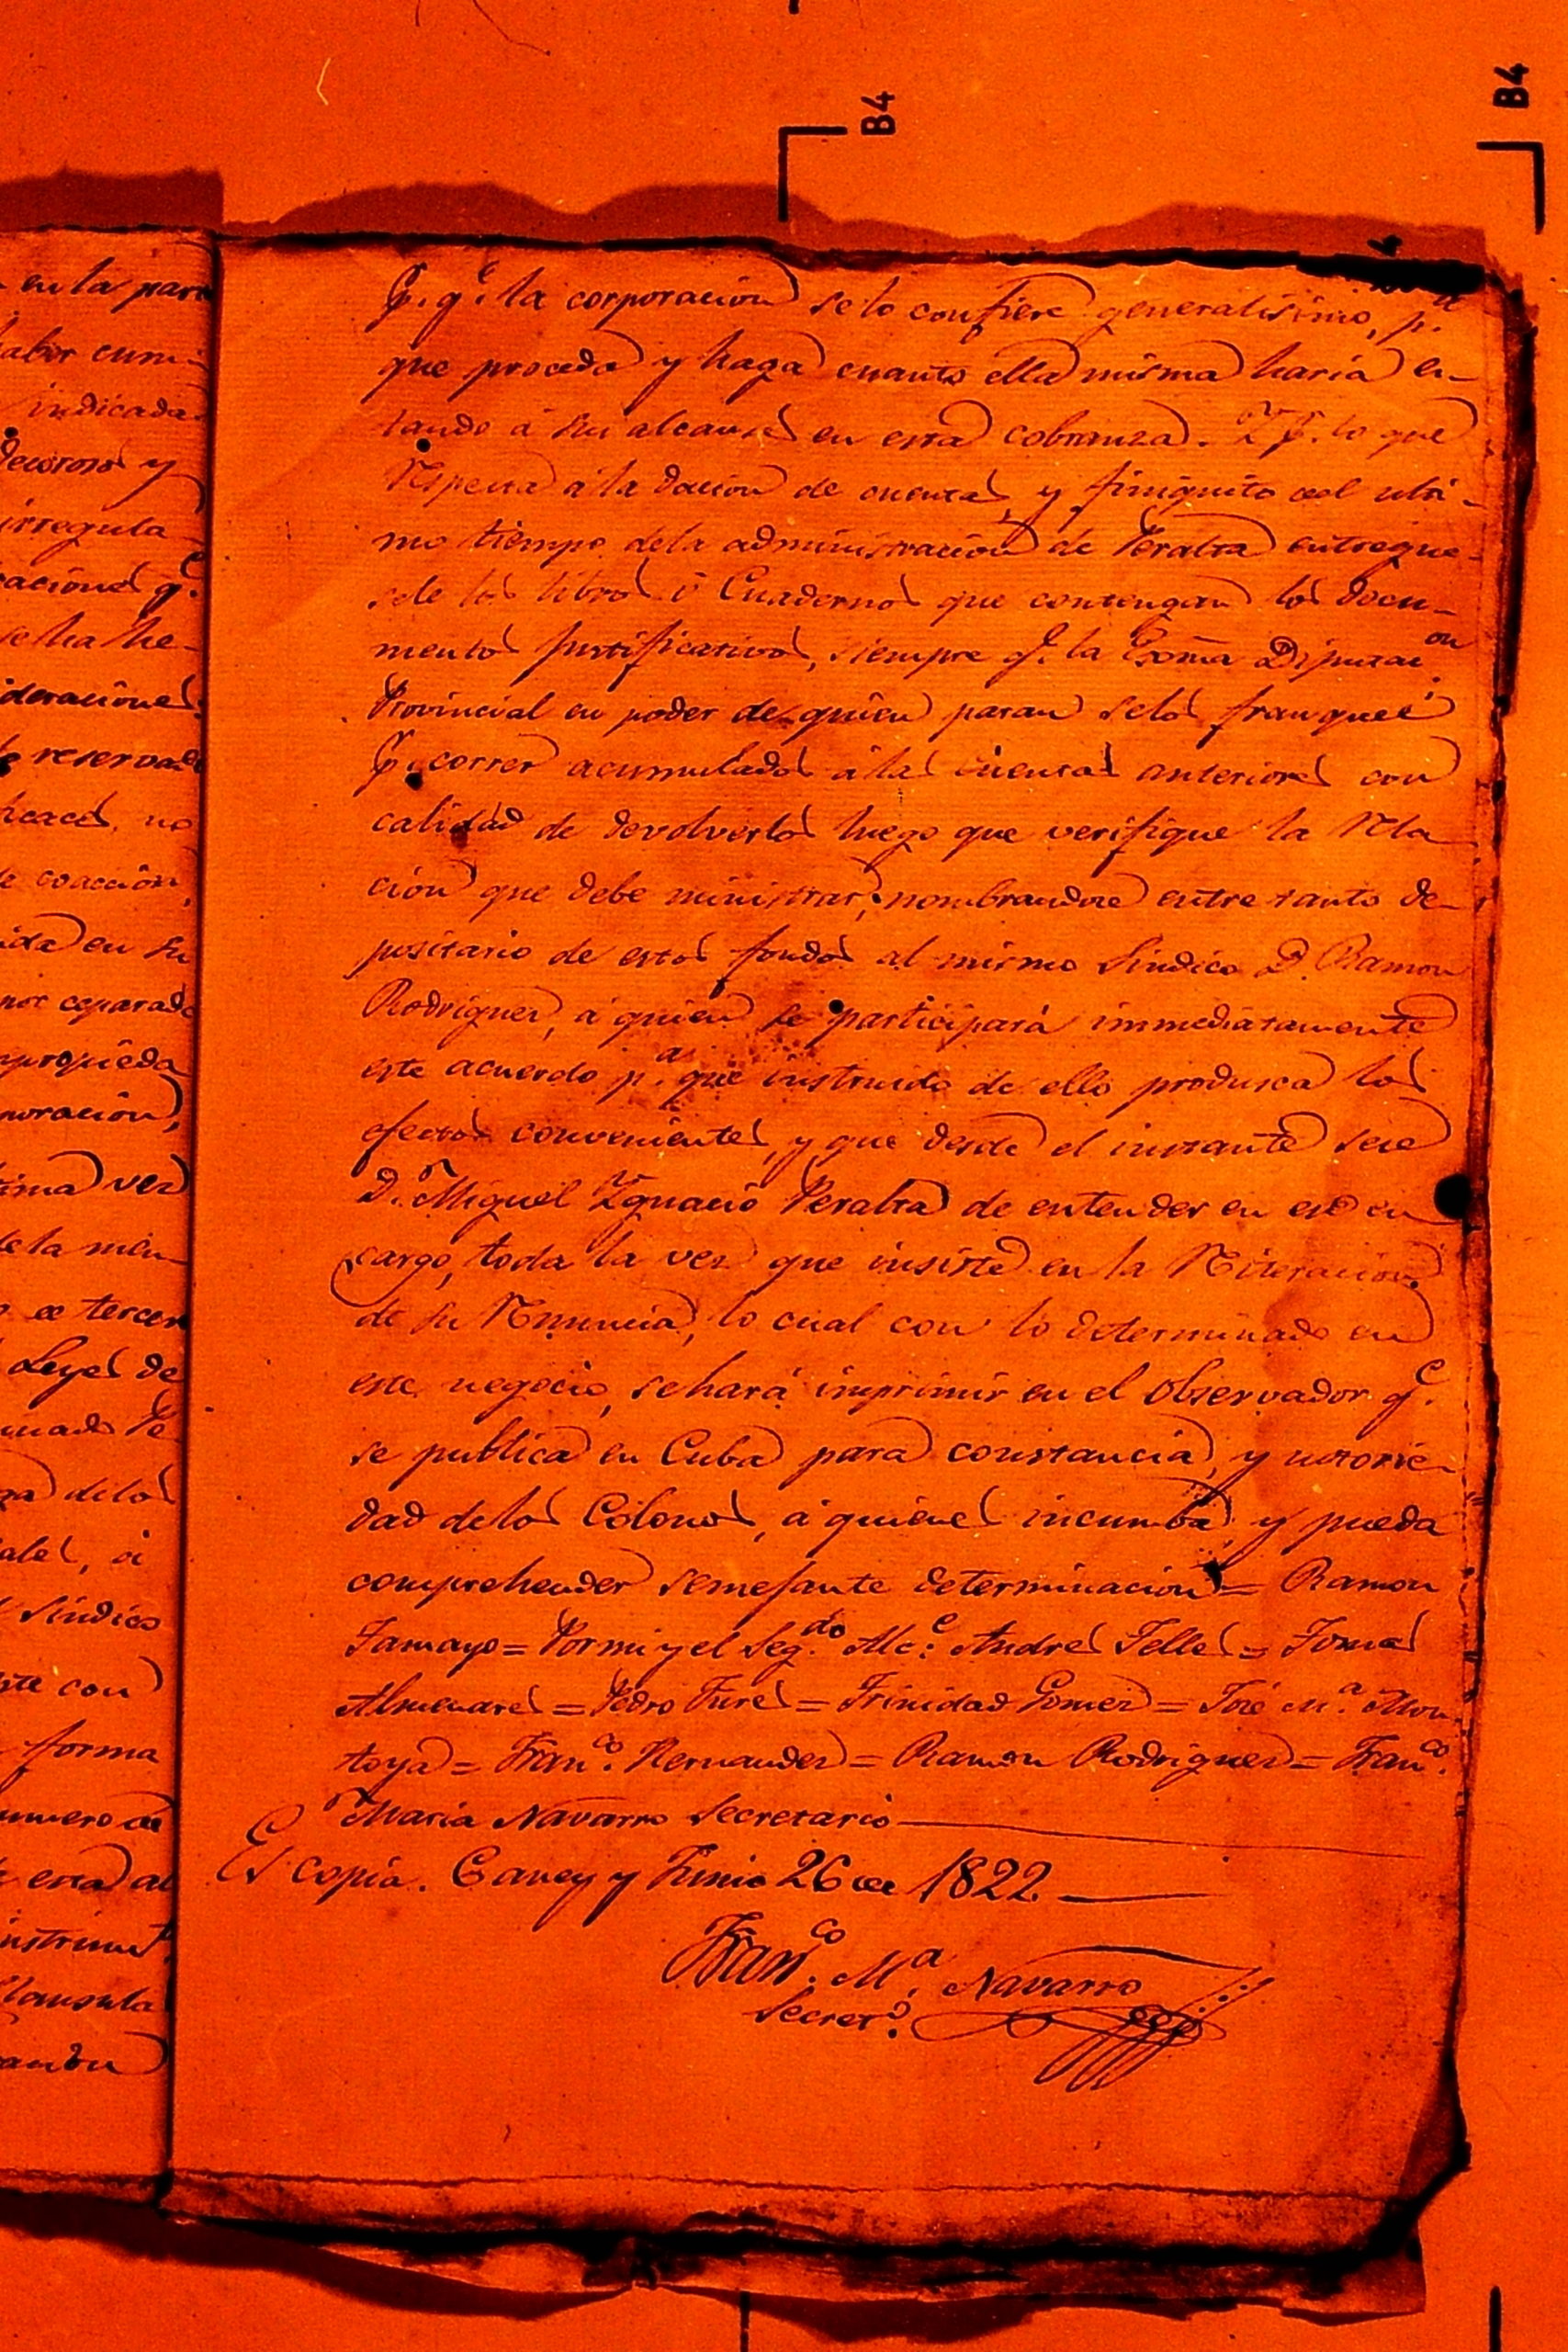 B4
B4
en la par
haber cum-
indicada
decoroso y
irregula
caciones q.e
se ha he-
ideraciones
reservad
no
de coacción,
ida en su
por ceparado
propieda
poracion,
tima vez
de la men
de tercer
Leyes de
minado Pe
de los
ales, á
Síndico
ste con
forma
numero de
esta al
instrum.t
P. q.e la corporacion se lo confiere generalisimo, p.a
que proceda y haga cuanto ella misma haria es-
tando á su alcance en esta cobranza. Y P. lo que
respecta á la dacion de cuentas, y finiquito del ulti-
mo tiempo de la administracion de Peralta entregue-
sele los libros ó Cuadernos que contengan los docu-
mentos justificativos, siempre q.e la Exma Diputac.on
Provincial en poder de quien paran selos franqueé
P. correr acumulados á las cuentas anteriores con
calidad de devolverlos luego que verifique la rela
cion que debe ministrar; nombrandose entre tanto de-
positario de estos fondos al mismo Sindico D. Ramon
Rodriguez, á quien se participará immediatamente
este acuerdo p.a que instruido de ello produsca los
efectos convenientes, y que desde el instante sese
D.n Miguel Ygnacio Peralta de entender en ese en
cargo, toda la vez que insiste en la reiteracion
de su renuncia, lo cual con lo determinado en
este negocio, se hará imprimir en el Observador q.e
se publica en Cuba para constancia, y notorie-
dad de los Colonos, á quienes incumba, y pueda
comprehender semejante determinacion = Ramon
Tamayo = Por mi y el Seg.do Alc.e Andres Telles = Tomas
Almenares = Pedro Tures = Trinidad Gomez = José M.a Mon-
toya = Fran.co Hernandez = Ramon Rodriguez = Fran.co
Maria Navarro Secretario
Es copia. Caney y Junio 26 de 1822.
Fran.co M.a Navarro
Secret.o